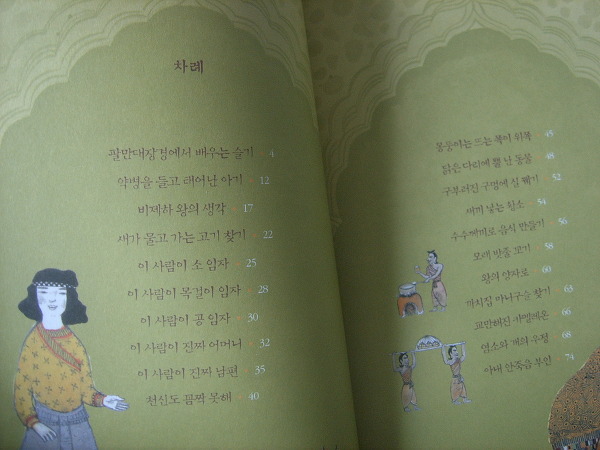 차례
팔만대장경에서 배우는 슬기 4
약병을 들고 태어난 아기 12
비제하 왕의 생각 17
새가 물고 가는 고기 찾기 22
이 사람이 소 임자 25
이 사람이 목걸이 임자 28
이 사람이 공 임자 30
이 사람이 진짜 어머니 32
이 사람이 진짜 남편 35
천신도 꼼짝 못해 40
몽둥이는 뜨는 쪽이 위쪽 45
닭은 다리에 뿔 난 동물 48
구부러진 구멍에 실 꿰기 52
새끼 낳는 황소 54
수수께끼로 음식 만들기 56
모래 밧줄 꼬기 58
왕의 양자로 60
까치집 마니구슬 찾기 63
교만해진 카멜레온 66
염소와 개의 우정 68
아내 안죽음 부인 74